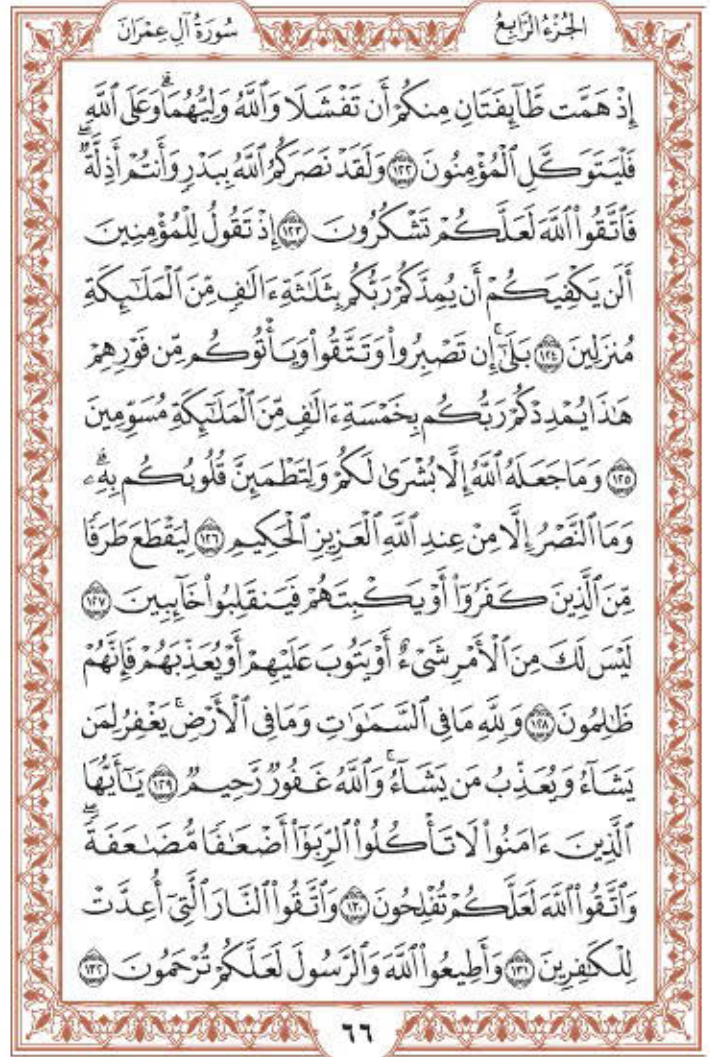 الجُزْءُ الرَّابِعُ
سُورَةُ آلِ عِمْرَان
إِذْ هَمَّت طَّآئِفَتَانِ مِنكُمْ أَن تَفْشَلَا وَٱللَّهُ وَلِيُّهُمَاۗ وَعَلَى ٱللَّهِ
فَلْيَتَوَكَّلِ ٱلْمُؤْمِنُونَ ١٢٢ وَلَقَدْ نَصَرَكُمُ ٱللَّهُ بِبَدْرٍ وَأَنتُمْ أَذِلَّةٌۖ
فَٱتَّقُوا۟ ٱللَّهَ لَعَلَّكُمْ تَشْكُرُونَ ١٢٣ إِذْ تَقُولُ لِلْمُؤْمِنِينَ
أَلَن يَكْفِيَكُمْ أَن يُمِدَّكُمْ رَبُّكُم بِثَلَـٰثَةِ ءَالَـٰفٍ مِّنَ ٱلْمَلَـٰٓئِكَةِ
مُنزَلِينَ ١٢٤ بَلَىٰٓۚ إِن تَصْبِرُوا۟ وَتَتَّقُوا۟ وَيَأْتُوكُم مِّن فَوْرِهِمْ
هَـٰذَا يُمْدِدْكُمْ رَبُّكُم بِخَمْسَةِ ءَالَـٰفٍ مِّنَ ٱلْمَلَـٰٓئِكَةِ مُسَوِّمِينَ
١٢٥ وَمَا جَعَلَهُ ٱللَّهُ إِلَّا بُشْرَىٰ لَكُمْ وَلِتَطْمَئِنَّ قُلُوبُكُم بِهِۦۗ
وَمَا ٱلنَّصْرُ إِلَّا مِنْ عِندِ ٱللَّهِ ٱلْعَزِيزِ ٱلْحَكِيمِ ١٢٦ لِيَقْطَعَ طَرَفًا
مِّنَ ٱلَّذِينَ كَفَرُوٓا۟ أَوْ يَكْبِتَهُمْ فَيَنقَلِبُوا۟ خَآئِبِينَ ١٢٧
لَيْسَ لَكَ مِنَ ٱلْأَمْرِ شَىْءٌ أَوْ يَتُوبَ عَلَيْهِمْ أَوْ يُعَذِّبَهُمْ فَإِنَّهُمْ
ظَـٰلِمُونَ ١٢٨ وَلِلَّهِ مَا فِى ٱلسَّمَـٰوَٰتِ وَمَا فِى ٱلْأَرْضِۚ يَغْفِرُ لِمَن
يَشَآءُ وَيُعَذِّبُ مَن يَشَآءُۚ وَٱللَّهُ غَفُورٌ رَّحِيمٌ ١٢٩ يَـٰٓأَيُّهَا
ٱلَّذِينَ ءَامَنُوا۟ لَا تَأْكُلُوا۟ ٱلرِّبَوٰٓا۟ أَضْعَـٰفًا مُّضَـٰعَفَةًۖ
وَٱتَّقُوا۟ ٱللَّهَ لَعَلَّكُمْ تُفْلِحُونَ ١٣٠ وَٱتَّقُوا۟ ٱلنَّارَ ٱلَّتِىٓ أُعِدَّتْ
لِلْكَـٰفِرِينَ ١٣١ وَأَطِيعُوا۟ ٱللَّهَ وَٱلرَّسُولَ لَعَلَّكُمْ تُرْحَمُونَ ١٣٢
٦٦